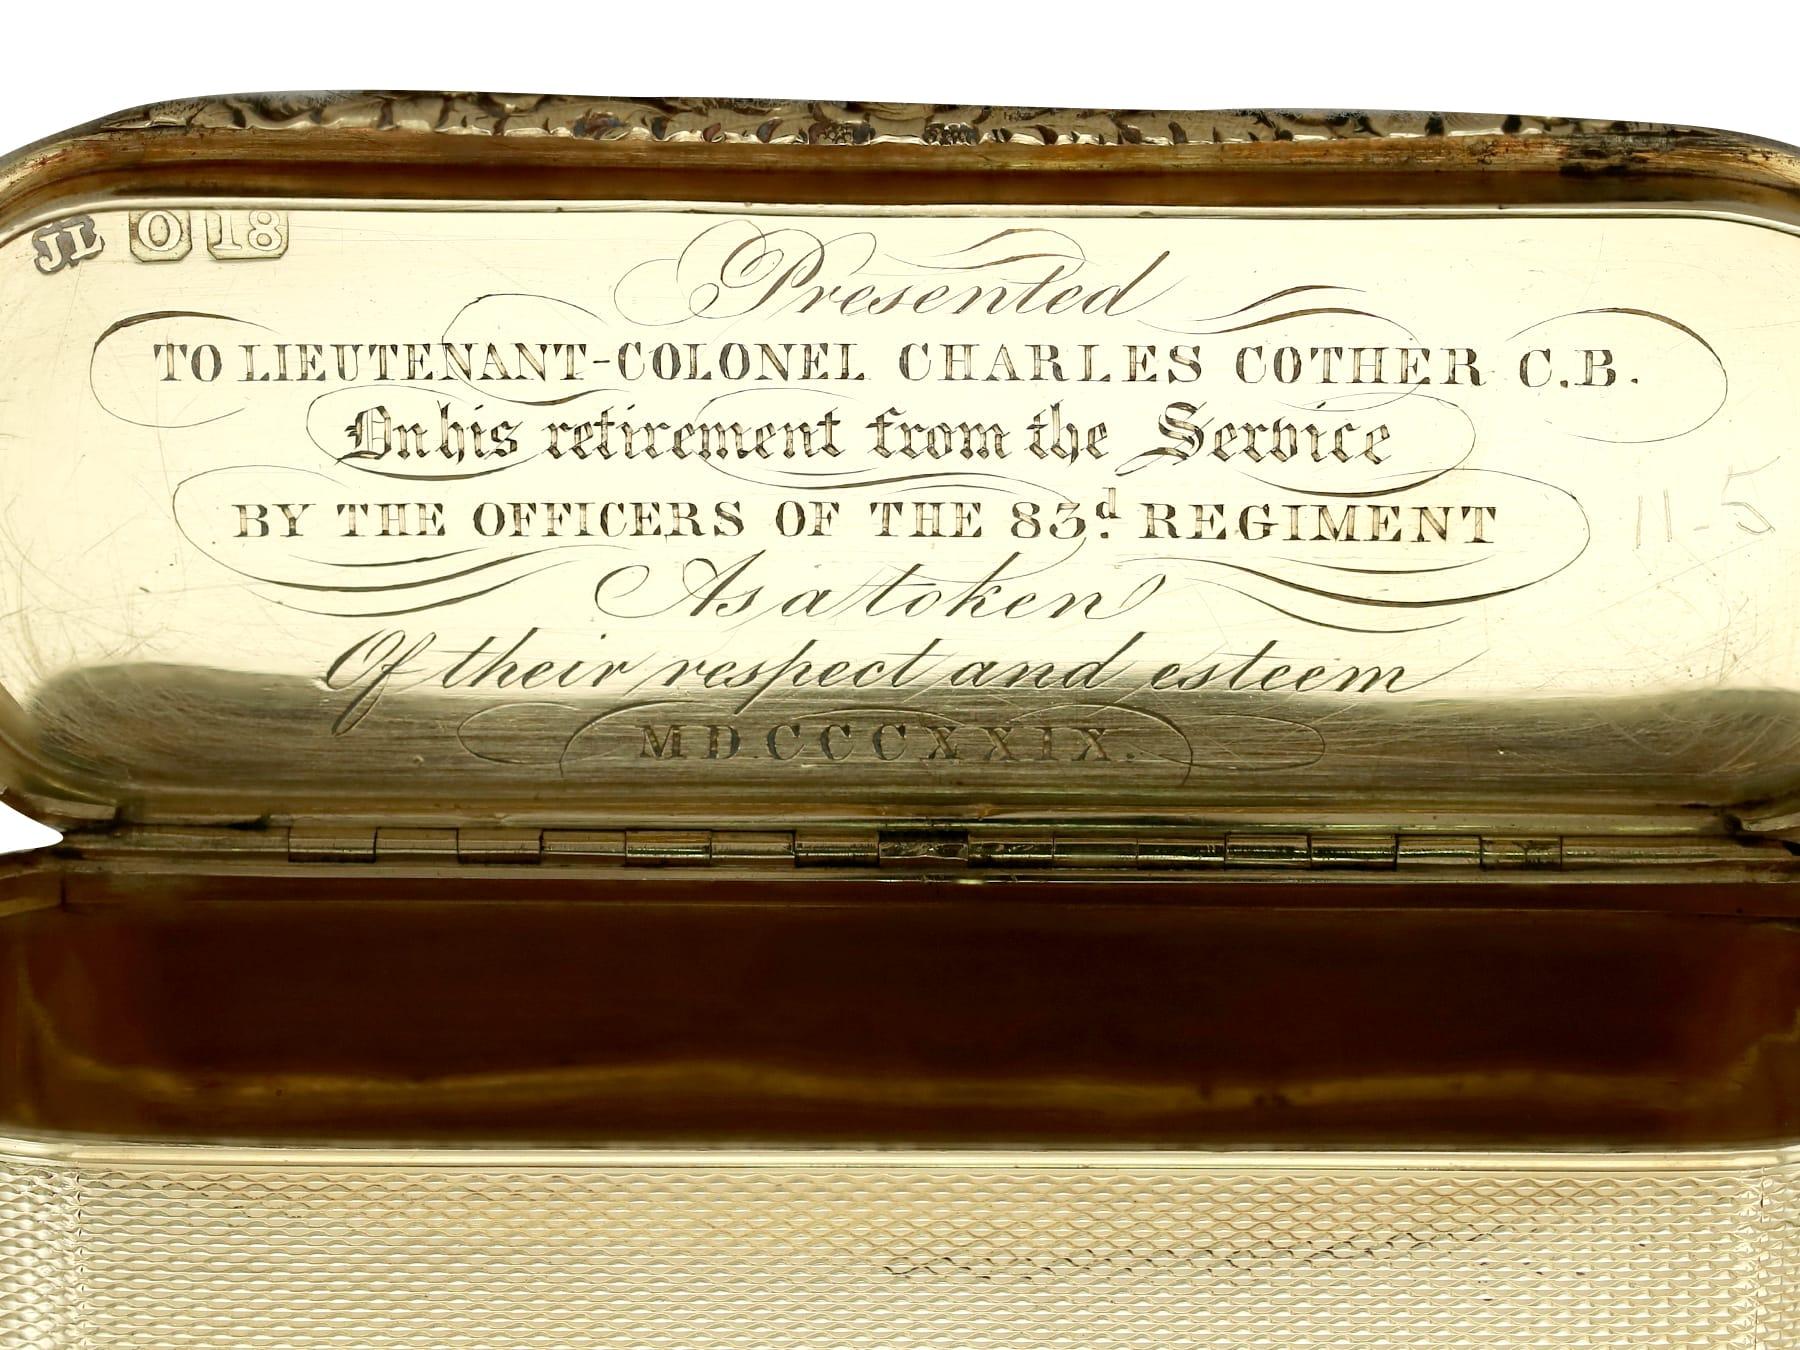 JL O 18
Presented
TO LIEUTENANT-COLONEL CHARLES COTHER C.B.
On his retirement from the Service
BY THE OFFICERS OF THE 83d. REGIMENT
As a token
Of their respect and esteem
MDCCCXXIX.
11-5